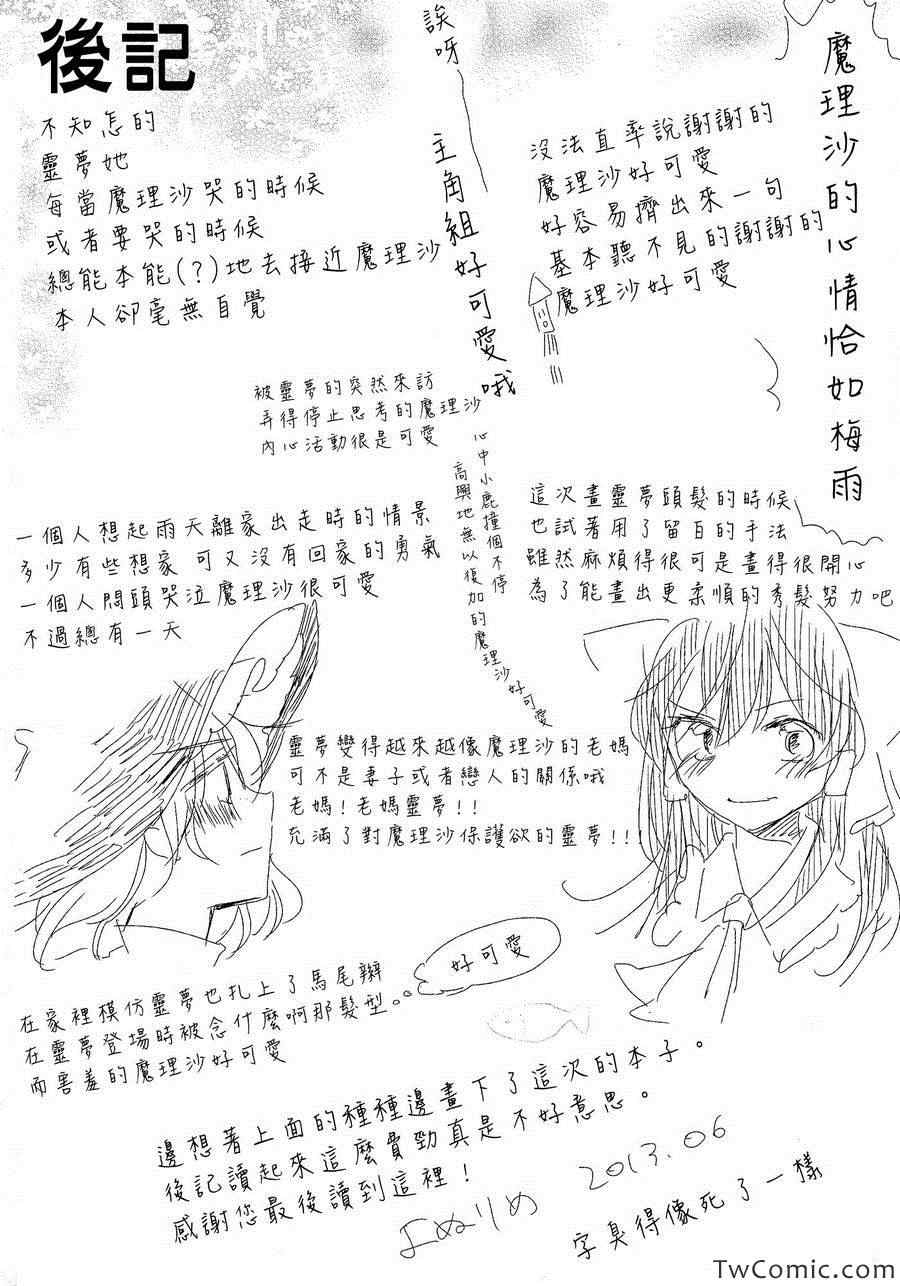 後記
不知怎的
靈夢她
每當魔理沙哭的時候
或者要哭的時候
總能本能(?)地去接近魔理沙
本人卻毫無自覺
誒呀
主角組好可愛哦
沒法直率說謝謝的
魔理沙好可愛
好容易擠出來一句
基本聽不見的謝謝的
魔理沙好可愛
魔理沙的心情恰如梅雨
被靈夢的突然來訪
弄得停止思考的魔理沙
內心活動很是可愛
心中小鹿撞個不停
高興地無以復加的魔理沙好可愛
一個人想起雨天離家出走時的情景
多少有些想家 可又沒有回家的勇氣
一個人悶頭哭泣魔理沙很可愛
不過總有一天
這次畫靈夢頭髮的時候
也試著用了留白的手法
雖然麻煩得很可是畫得很開心
為了能畫出更柔順的秀髮努力吧
靈夢變得越來越像魔理沙的老媽
可不是妻子或者戀人的關係哦
老媽!老媽靈夢!!
充滿了對魔理沙保護欲的靈夢!!!
好可愛
在家裡模仿靈夢也扎上了馬尾辮
在靈夢登場時被念什麼啊那髮型。
而害羞的魔理沙好可愛
邊想著上面的種種邊畫下了這次的本子。
後記讀起來這麼費勁真是不好意思。
感謝您最後讀到這裡!
よぬりめ 2013.06
字臭得像死了一樣
TwComic.com